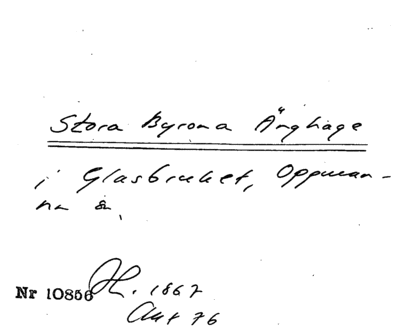 Stora Byrona Änghage
i Glasbruket, Oppman-
na sn.
Nr 10856 H. 1867
Akt 76